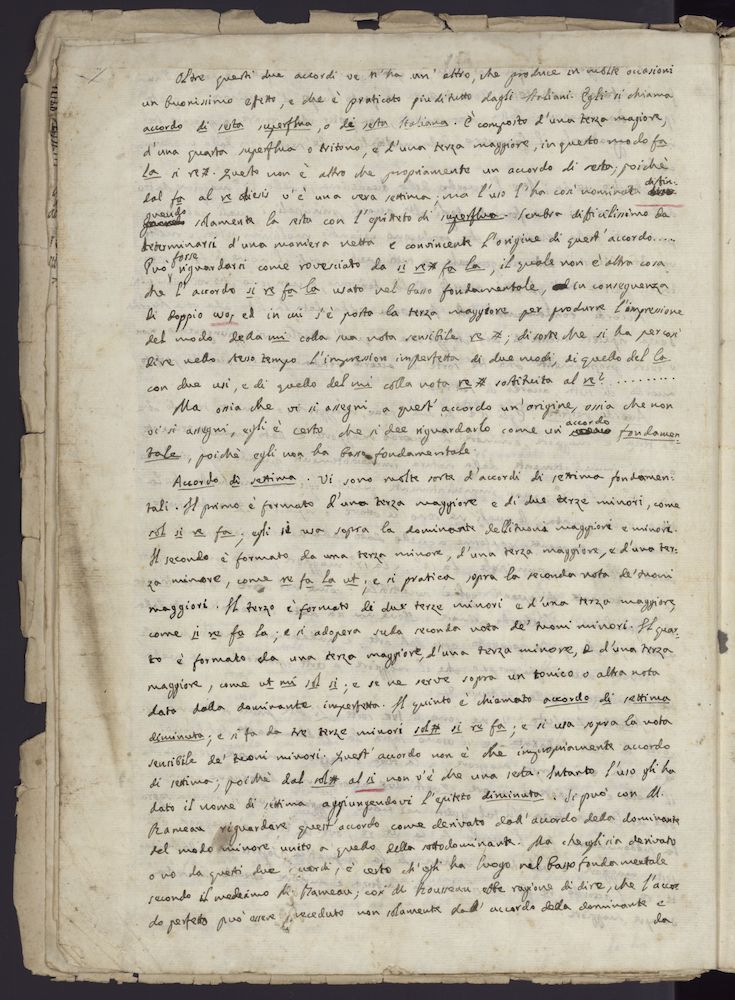 Oltre questi due accordi ve n'ha un' altro, che produce in molte occasioni
un buonissimo effetto, e che è praticato più di tutto dagli Italiani. Egli si chiama
accordo di sesta superflua, o di sesta Italiana. È composto d'una terza magiore,
d'una quarta superflua o tritono, e d'una terza maggiore, in questo modo fa
la si re#. Questo non è altro che propriamente un accordo di sesta; poichè
dal fa al re diesis v'è una vera settima; ma l'uso l'ha così nominata distin-
guendo solamente la sesta con l'epiteto di superflua. Sembra difficilissimo da
determinarsi d'una maniera netta e convincente l'origine di quest' accordo.....
Può forse riguardarsi come rovesciato da si re# fa la, il quale non è altra cosa
che l' accordo si re fa la usato nel basso fondamentale, ed in conseguenza
di doppio uso, ed in cui s'è posta la terza maggiore per produrre l'impressione
del modo della mi colla sua nota sensibile re #; di sorte che si ha per così
dire nello stesso tempo l'impression imperfetta di due modi, di quello del la
con due usi, e di quello del mi colla nota re # sostituita al re ♮..........
Ma ossia che vi si assegni a quest' accordo un' origine, ossia che non
vi si assegni, egli è certo che si dee riguardarlo come un' accordo fondamen-
tale, poichè egli non ha basso fondamentale.
Accordo di settima. Vi sono molte sorte d'accordi di settima fondamen-
tali. Il primo è formato d'una terza maggiore e di due terze minori, come
sol si re fa; egli si usa sopra la dominante dell'tuono maggiore e minore.
Il secondo è formato da una terza minore, d'una terza maggiore, e d'una ter-
za minore, come re fa la ut; e si pratica sopra la seconda nota de' tuoni
maggiori. Il terzo è formato di due terze minori e d'una terza maggiore,
come si re fa la; e si adopera sulla seconda nota de' tuoni minori. Il quar-
to è formato da una terza maggiore, d'una terza minore, e d'una terza
maggiore, come ut mi sol si; e se ne serve sopra un tonico o altra nota
data dalla dominante imperfetta. Il quinto è chiamato accordo di settima
diminuta; e si fa da tre terze minori sol# si re fa; e si usa sopra la nota
sensibile de' tuoni minori. Quest' accordo non è che impropiamente accordo
di settima; poichè dal sol# al si non v'è che una sesta. Intanto l'uso gli ha
dato il nome di settima aggiungendovi l'epiteto diminuta. Si può con M.
Rameau riguardare quest' accordo come derivato dall' accordo della dominante
del modo minore unito a quello della sottodominante. Ma che egli sia derivato
o no da questi due accordi, è certo ch'egli ha luogo nel basso fondamentale
secondo il medesimo M. Rameau; così M. Rousseau ebbe ragione di dire, che l'accor-
do perfetto può essere preceduto non solamente dall' accordo della dominante e
da